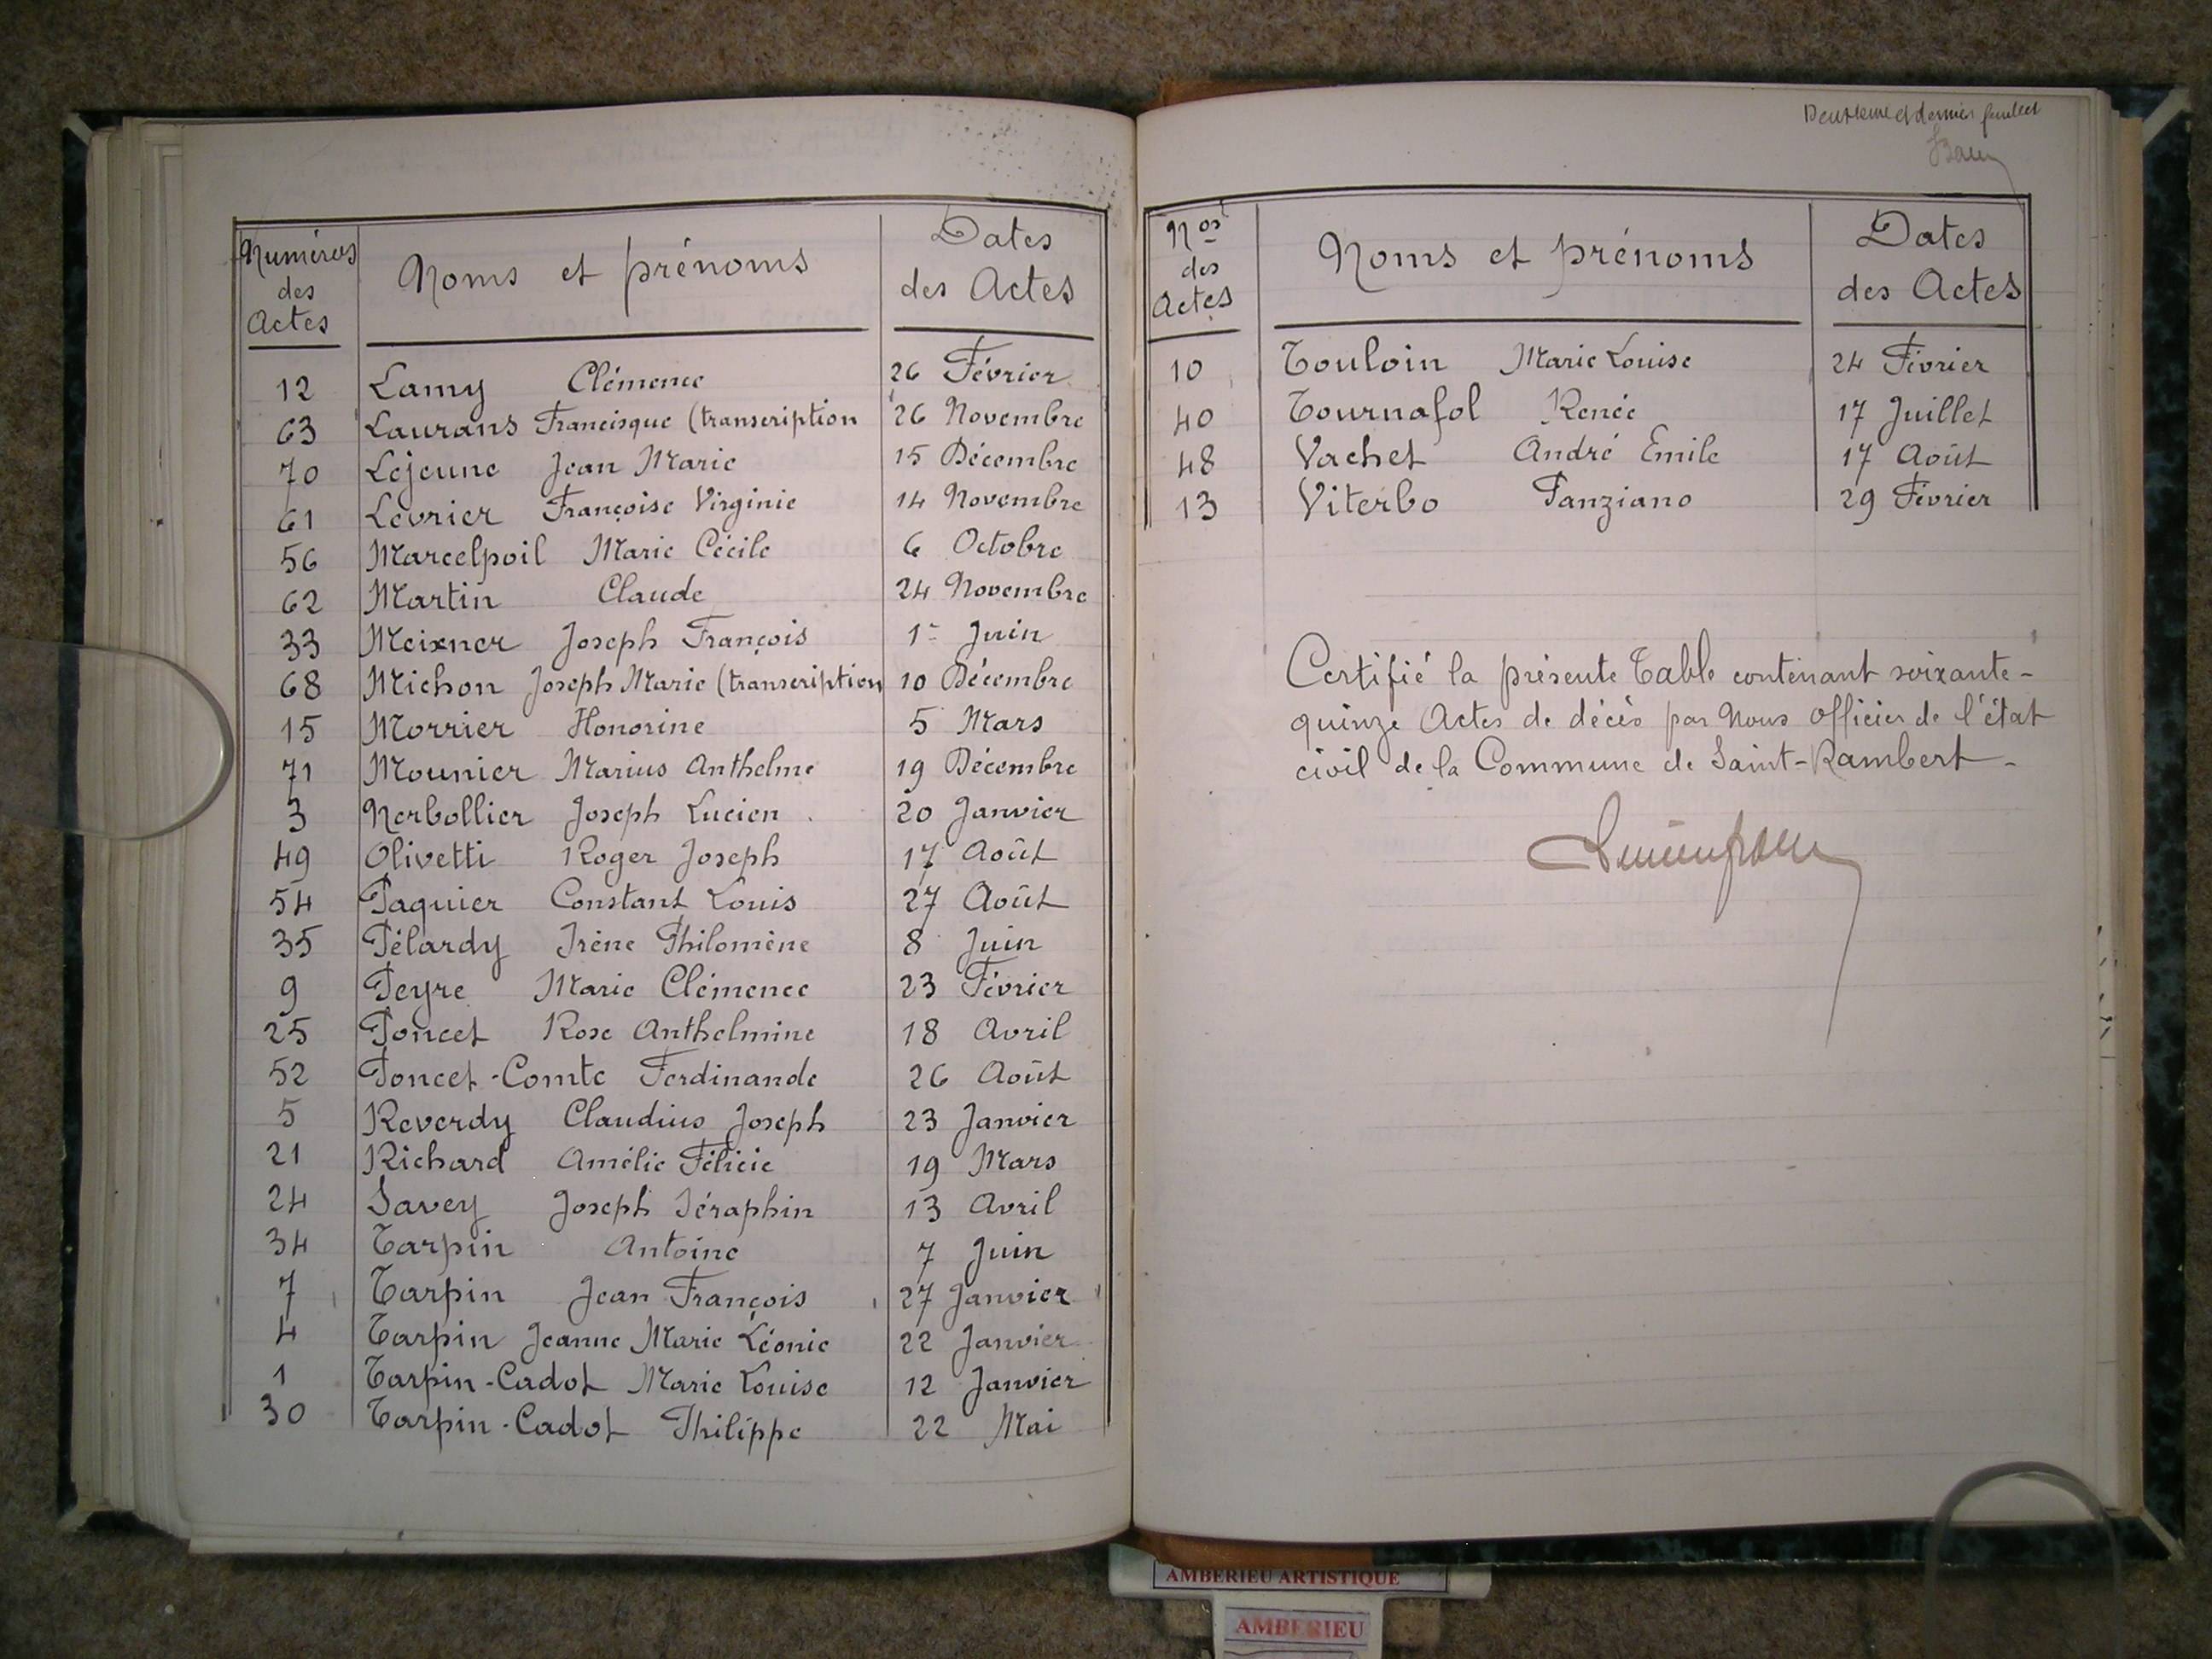 Numéros des Actes | Noms et prénoms | Dates des Actes
12 Lamy Clémence 26 Février
63 Laurans Francisque (transcription 26 Novembre
70 Lejeune Jean Marie 15 Décembre
61 Levrier Françoise Virginie 14 Novembre
56 Marcelpoil Marie Cécile 6 Octobre
62 Martin Claude 24 Novembre
33 Meixner Joseph François 1er Juin
68 Michon Joseph Marie (transcription 10 Décembre
15 Morrier Honorine 5 Mars
71 Mounier Marius Anthelme 19 Décembre
3 Nerbollier Joseph Lucien 20 Janvier
49 Olivetti Roger Joseph 17 Août
54 Paquier Constant Louis 27 Août
35 Pélardy Irène Philomène 8 Juin
9 Peyre Marie Clémence 23 Février
25 Poncet Rose Anthelmine 18 Avril
52 Poncet-Comte Ferdinande 26 Août
5 Reverdy Claudius Joseph 23 Janvier
21 Richard Amélie Félicie 19 Mars
24 Savey Joseph Séraphin 13 Avril
34 Tarpin Antoine 7 Juin
7 Tarpin Jean François 27 Janvier
4 Tarpin Jeanne Marie Léonie 22 Janvier
1 Tarpin-Cadot Marie Louise 12 Janvier
30 Tarpin-Cadot Philippe 22 Mai
Deuxième et dernier feuillet
Nos des Actes | Noms et prénoms | Dates des Actes
10 Touloin Marie Louise 24 Février
40 Tournafol Renée 17 Juillet
48 Vachet André Emile 17 Août
13 Viterbo Panziano 29 Février
Certifié la présente Table contenant soixante-
quinze Actes de décès par Nous Officier de l'état
civil de la Commune de Saint-Rambert-
AMBERIEU ARTISTIQUE
AMBERIEU